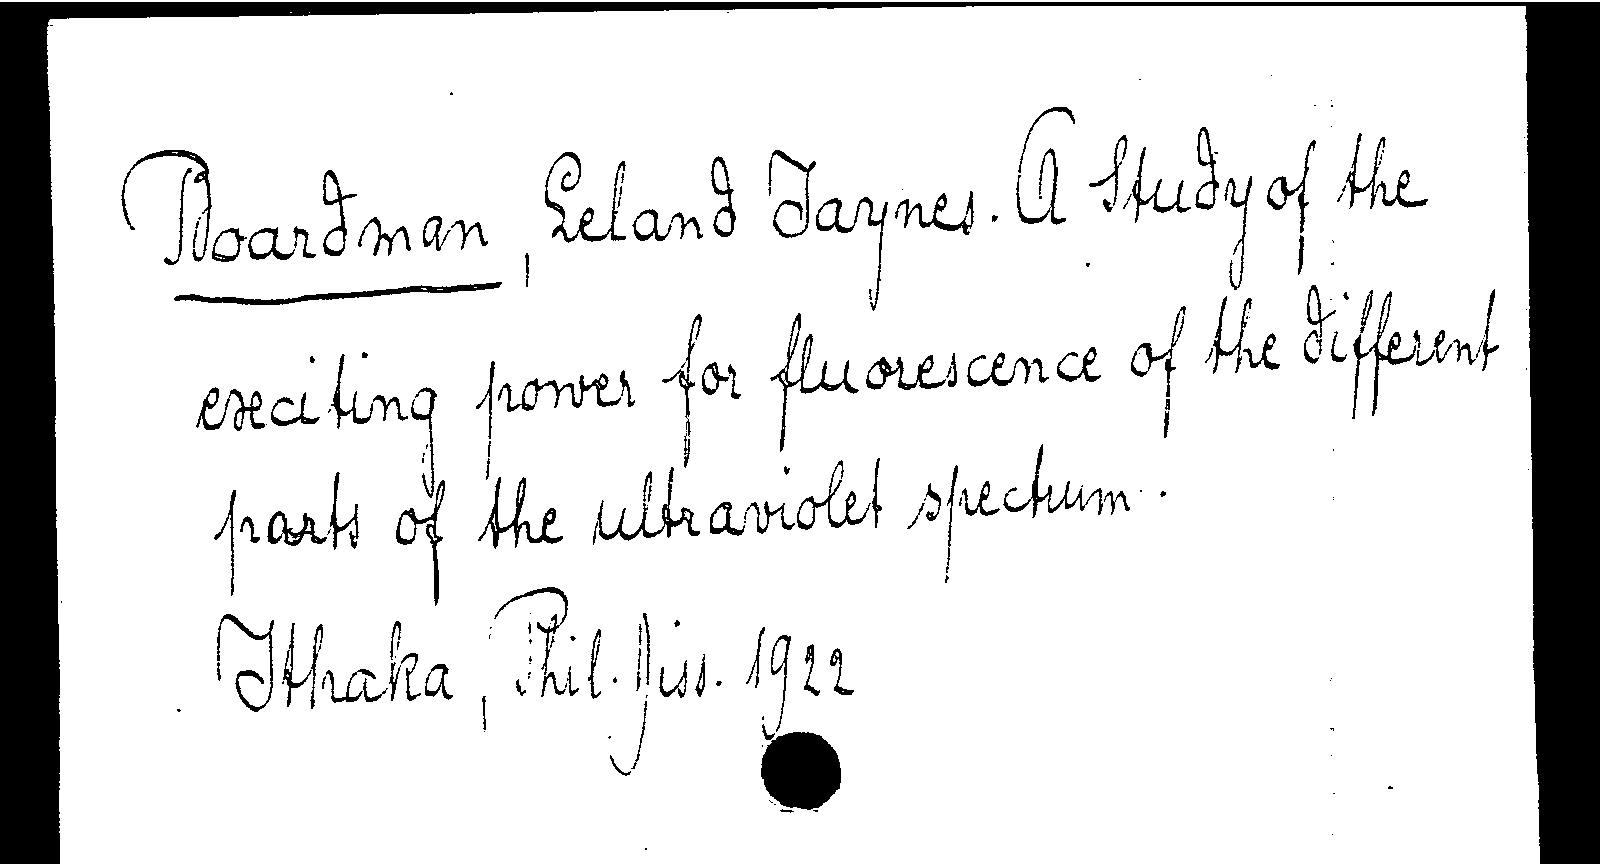 Boardman, Leland Jaynes. A Study of the
exciting power for fluorescence of the different
parts of the ultraviolet spectrum.
Ithaka, Phil. Diss. 1922